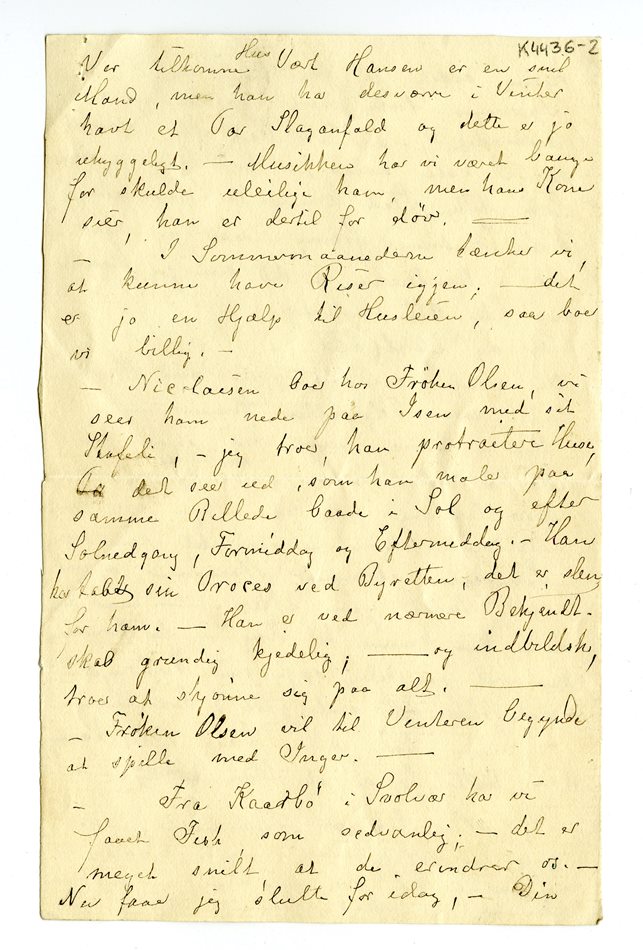 K4436-2
Vor tilkomne Hus Vært Hansen er en snil
Mand, men han har desværre i Vinter
havt et Par Slaganfald og dette er jo
uhyggeligt. — Musikken har vi været bange
for skulde uleilige ham, men hans Kone
siér, han er dertil for døv. —
— I Sommermaanederne tænker vi,
at kunne have Riser igjen; — det
er jo en Hjælp til Husleien, saa boe
vi billig. —
— Nicolaisen boer hos Frøken Olsen, vi
seer ham nede paa Isen med sit
Stafeli, — jeg troer, han protraiterer Huse,
det seer ud, som han maler paa
samme Billede baade i Sol og efter
Solnedgang, Formiddag og Eftermiddag. — Han
har tabt sin Proces ved Byretten, det er slemt
for ham. — Han er ved nærmere Bekjendt-
skab grundig kjedelig; — og indbildsk,
troer at skjønne sig paa alt. —
— Frøken Olsen vil til Vinteren begynde
at spille med Inger. —
— Fra Kaarbø i Svolvær har vi
faaet Fisk, som sedvanlig; — det er
meget snilt at de erindrer os. —
Nu faar jeg slutte for idag, — Din